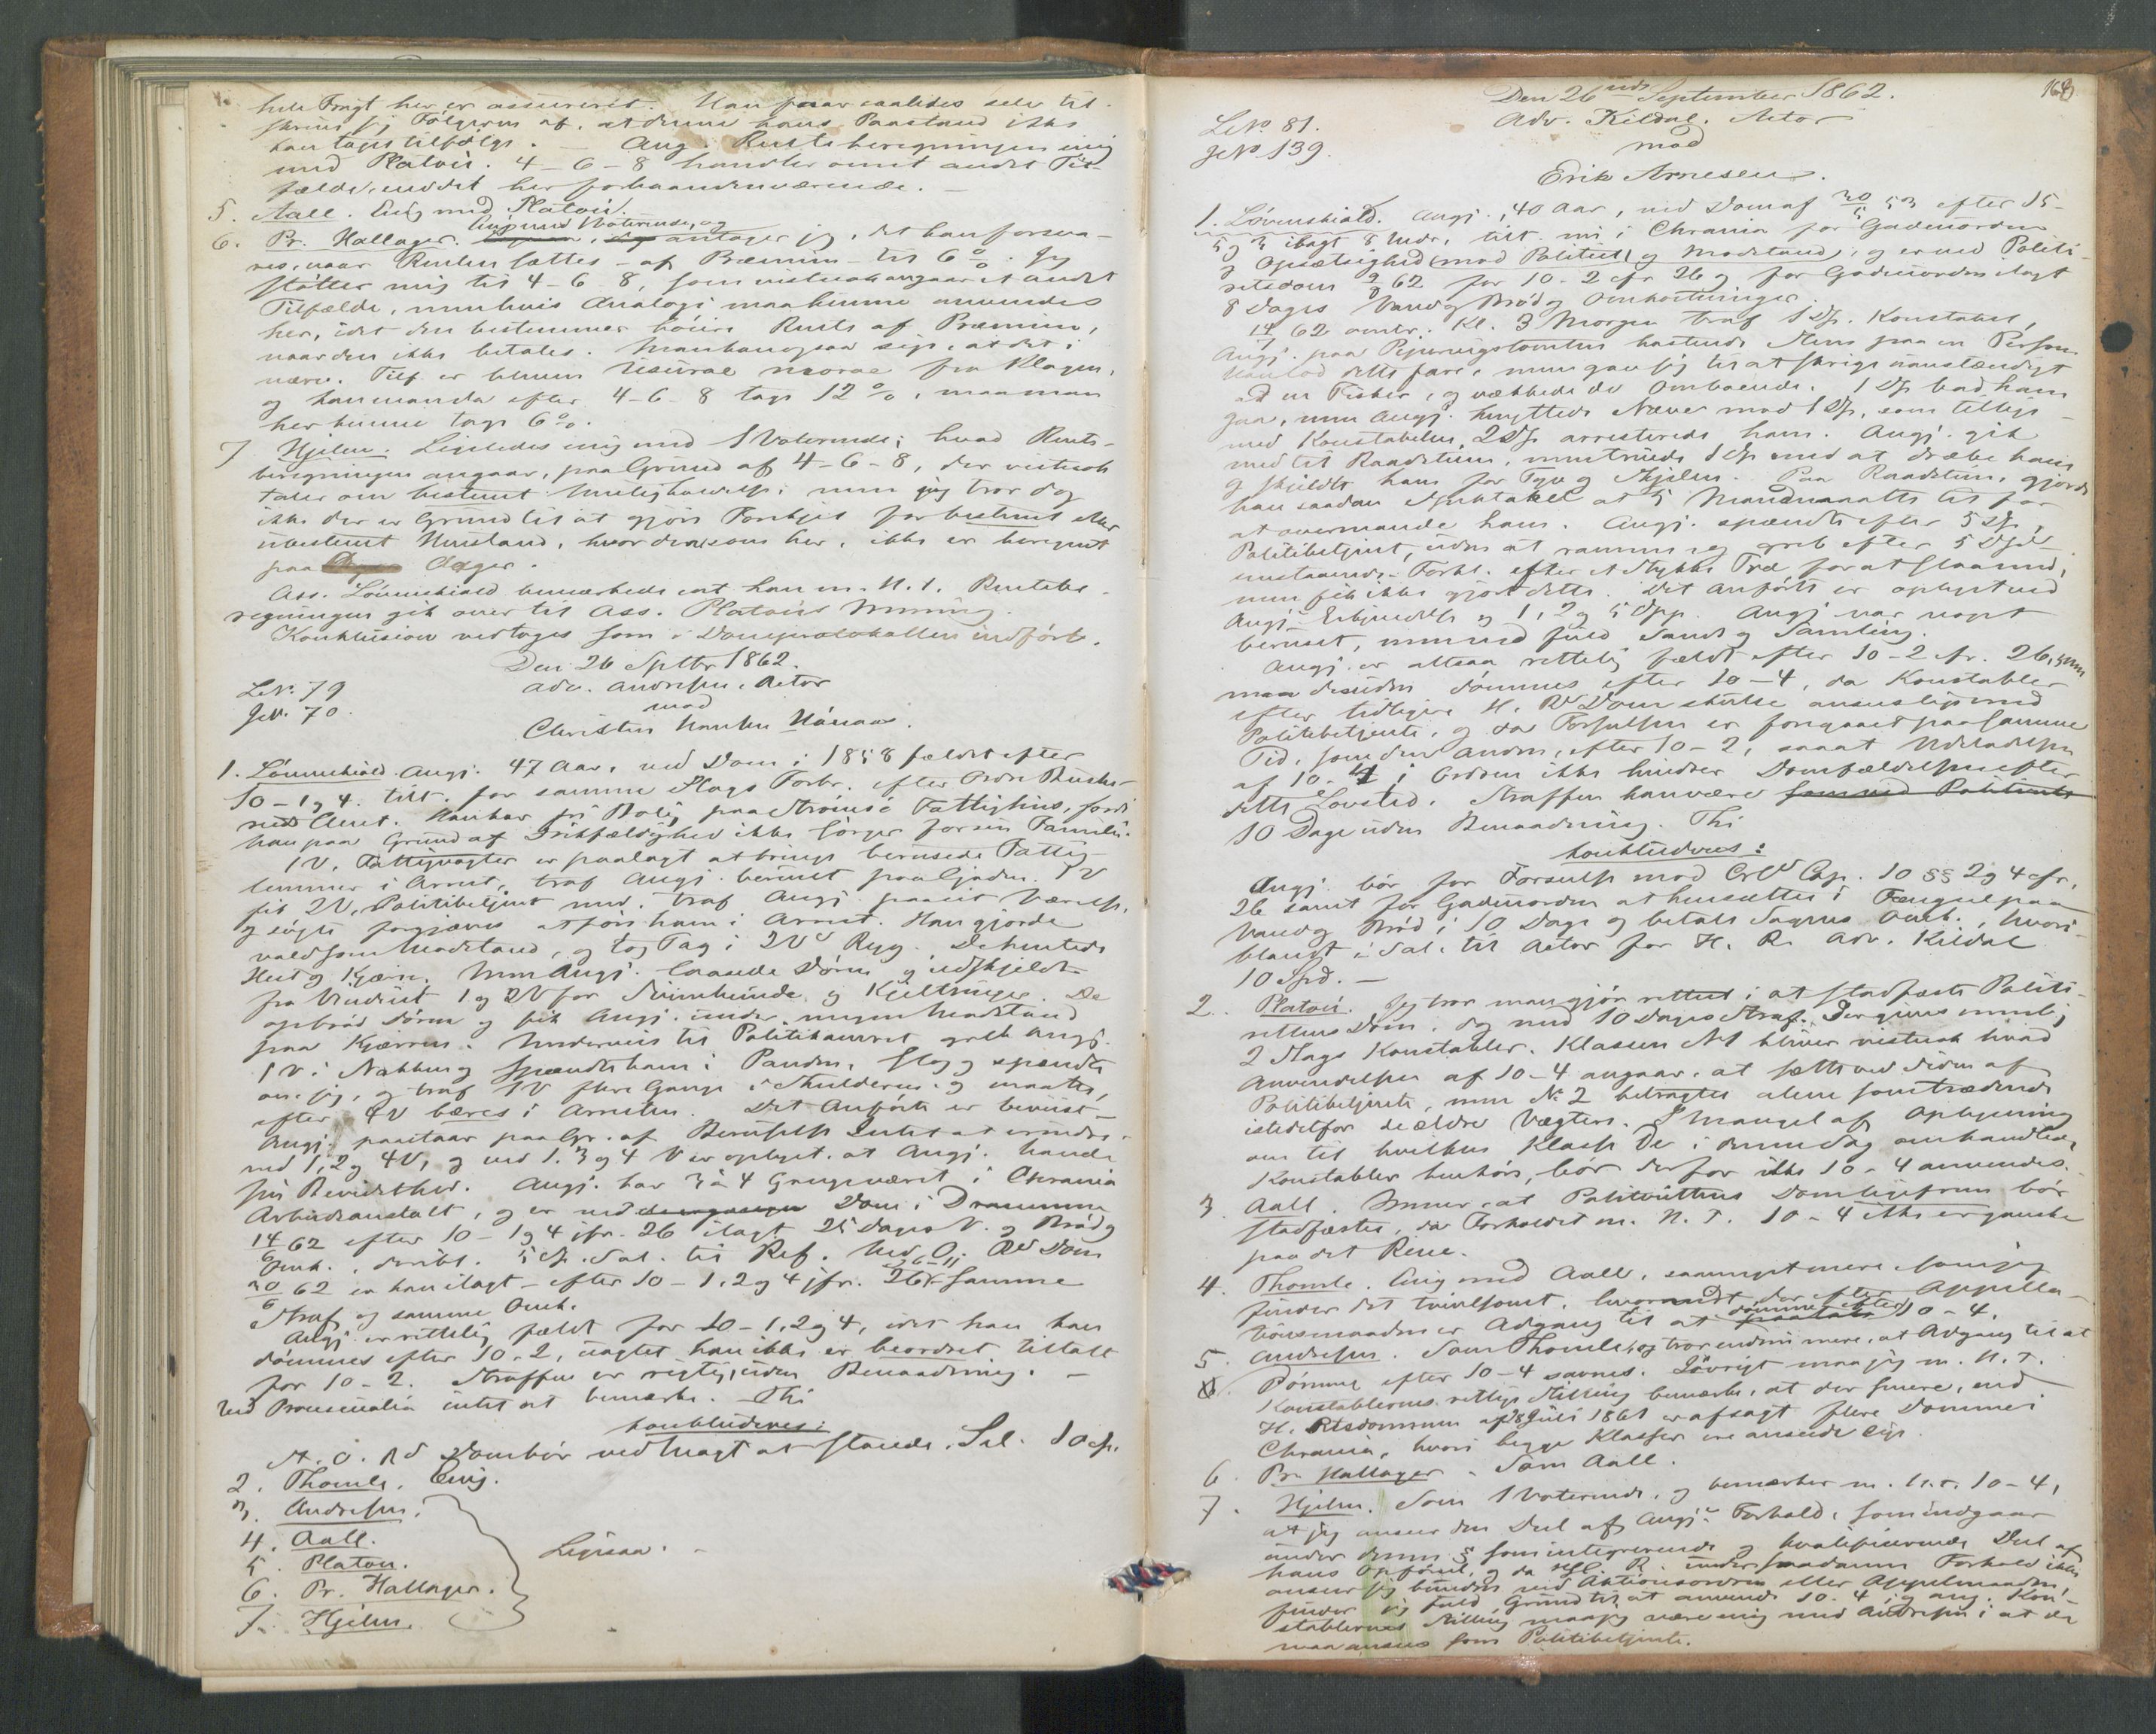 hele Fragt her er assureret. Han faar saaledes selv til-
skrive sig Følgerne af, at denne hans Paastand ikke
kan tages tilfølge. — Ang. Rentebereigningen enig
med Platou. 4-6-8 handler om et andet Til-
fælde, end det her forhaandenværende. —
5. Aall. Enig med Platou.
6. Pr. Hallager. Enig med 1 Voterende, og antager jeg, at han forsva-
res, naar Renten sættes - af Præmien - til 6 %. Jeg
støtter mig til 4-6-8, som vistnok angaar et andet
Tilfælde, men hvis Analogi maa kunne anvendes
her, idet den bestemmer høiere Rente af Præmien,
naar den ikke betales. Man kan ogsaa sige, at det i
nærv. Tilf. er blevet usurae morae fra Klagen,
og kan man da efter 4-6-8 tage 12 %, maa man
her kunne tage 6 %.
7 Hjelm. Ligeledes enig med 1 Voterende; hvad Rente-
beregningen angaar, paa Grund af 4-6-8, der vistnok
taler om bestemt men jeg tror dog
ikke der er Grund til at gjøre Forskjel for bestemt eller
ubestemt Henstand, hvor den som her, ikke er beregnet
paa Dage.
Ass. Løvenskiold bemærkede at han m. H. t. Rentebe-
regningen gik over til Ass. Platous Mening.
Konklusion vedtoges som i Domsprotokollen indført.
Den 26 Septbr 1862.
LNo. 79 Adv. Andresen, Actor
JNo. 70. mod
Christen Hansen Haanaas.
1. Løvenskiold. Angj. 47 Aar, ved Dom i 1858 fældet efter
10-1 og 4. tilt. for samme Slags Forbr. efter Ordre
med Arrest. Han har fri Bolig paa Strømsø Fattighus, fordi
han paa Grund af Drikfældighed ikke sørger for sin Familie.
1 V, Fattigvogter er paalagt at bringe berusede Fattig-
lemmer i Arrest, traf Angj. beruset paa Gaden. 1 V
fik 2 V, Politibetjent med, traf Angj. paa sit Værelse,
og søgte forgjæves at føre ham i Arrest. Han gjorde
voldsom Modstand, og tog Tag i 2 Vs Ryg. De hentede
Hest og Kjærre. Men Angj. laasede Døren og udskjeldte
fra Vinduet 1 og 2 V for Svinehunde og Kjeltringer. De
opbrød Døren og fik Angj. under megen Modstand
paa Kjærren. Underveis til Politikamret greb Angj.
1 V i Nakken og spændte ham i Panden, slog og spændte
om sig, og traf 1 V flere Gange i Skulderen og maatte,
efter 4 V bæres i Arresten. Det Anførte er bevist
Angj. paastaar paa Gr. af Beruselse Intet at erindre.
med 1, 2 og 4 V, og ved 1. 3 og 4 V er oplyst, at Angj. havde
sin Bevidsthed. Angj. har 3 à 4 Gange været i Chrania
Arbeidsanstalt, og er ved Dom i Drammen
14/6 62 efter 10-1 og 4 jfr. 26 ilagt 25 Dages V. og Brød og
Omk., deribl. 5 Sp. Sal. til Ref. Ved O. Rs Dom
30/6 62 er han ilagt - efter 10-1, 2 og 4 jfr. 26 samme
Straf og samme Omk.
Angj. er rettelig fældt for 10-1, 2 og 4, idet han kan
dømmes efter 10-2, uagtet han ikke er beordret tiltalt
for 10-2. Straffen er rigtig, uden Benaadning. —
Ved Processualia intet at bemærke. Thi
konkluderes:
St. O. Rs Dom bør ved Magt at stande. Sal. 10 Sp.
2. Thomle. Enig.
3. Andresen.
4. Aall.
5. Platou. Ligesaa. —
6. Pr. Hallager.
7. Hjelm.
160
Den 26 de September 1862.
LNo 81. Adv. Kildal, Actor
JNo 139. mod
Erik Arnesen.
1. Løvenskiold. Angj., 40 Aar, ved Dom af 20/5 53 efter 15-
5 og 3 ilagt 8 Mdr., tilt. nu i Chrania for Gadeuorden
og Opsætsighed (mod Politiet) og Modstand, og er ved Politi-
retsdom 9/8 62 for 10-2 cfr 26 og for Gadeuorden ilagt
8 Dages Vand og Brød og Omkostninger.
14/7 62 omtr. Kl. 3 Morgen traf 1 Dp. Konstabel,
Angj. paa Pipervigstomten kastende Sten paa en Person
Han lod dette fare, men gav sig til at skrige uanstændigt
ad en Fisker, og vækkede de Omboende. 1 Dp bad ham
gaa, men Angj. knyttede Næver mod 1 Dp, som tillige
med Konstabelen, 2 Dp arresterede ham. Angj. gik
med til Raadstuen, men truede 1 Dp med at dræbe ham
og skjeldte ham for Tyv og Skjelm. Paa Raadstuen, gjorde
han saadan Spektakel at 5 Mand maatte til for
at overmande ham. Angj. spændte efter 5 Dp,
Politibetjent, uden at ramme og greb efter 5 Dps
enstaaende Forkl. efter et Stykke Træ for at slaa med,
men fik ikke gjort dette. Det Anførte er oplyst ved
Angj. Erkjendelse og 1, 2 og 5 Dpp. Angj. var noget
beruset, men ved fuld Sands og Samling.
Angj. er altsaa rettelig fældt efter 10-2 cfr. 26, men
maa desuden dømmes efter 10-4, da Konstabler
efter tidligere H. Rs Dom skulle ansees lige med
Politibetjente, og da Forseelsen er foregaaet paa samme
Tid, som den anden, efter 10-2, saa at Udeladelsen
af 10-4 i Ordren ikke hindrer Domfældelsen efter
dette Lovsted. Straffen kan være som ved Politirets
10 Dage uden Benaadning. Thi
konkluderes:
Angj. bør for Forseelse mod Crl Cap. 10 §§ 2 og 4 cfr.
26 samt for Gadeuorden at hensættes i Fængsel paa
Vand og Brød i 10 Dage og betale Sagens Omk., hvori-
blandt i Sal. til Actor for H. R. Adv. Kildal
10 Spd. —
2. Platou. Jeg tror man gjør rettest i at stadfæste Politi-
rettens Dom, dog med 10 Dages Straf. Der gives nemlig
2 Slags Konstabler. Klassen No 1 bliver vistnok hvad
Anvendelsen af 10-4 angaar, at sætte ved Siden af
Politibetjente, men No 2 betragtes alene som trædende
istedetfor de ældre Vægtere. I Mangel af Oplysning
om til hvilken Klasse de i denne Sag omhandlede
Konstabler henhøre, bør derfor ikke 10-4 anvendes.
3. Aall. Mener, at Politirettens Dom ligefrem bør
stadfæstes, da Forholdet m. H. t. 10-4 ikke er ganske
paa det Rene.
4. Thomle. Enig med Aall, saameget mere som jeg
finder det tvivlsomt, hvorvidt der efter Appella-
tionsmaaden er Adgang til at dømme efter 10-4.
5. Andresen. Som Thomle, og tror endnu mere, at Adgang til at
Dømme efter 10-4 savnes. Iøvrigt maa jeg m. H. t.
Konstablernes retlige Stilling bemærke, at der senere, end
H. Rtsdommen af 18 Juli 1861 er afsagt flere Domme i
Chrania, hvori begge Klasser ere ansete lige.
6. Pr. Hallager. Som Aall.
7. Hjelm. Som 1 Voterende, og bemærker m. H. t. 10-4,
at jeg anser den Deel af Angj.s Forhold, som indgaar
under denne § som integrerende og kvalificerende Deel af
hans Opførsel, og da H. R. under saadanne Forhold ikke
anser sig bunden ved Aktionsordren eller Appelmaaden,
finder jeg fuld Grund til at anvende 10-4, og ang. Kon-
stablernes Stilling maa jeg være enig med Andresen i at de
maa ansees som Politibetjente.